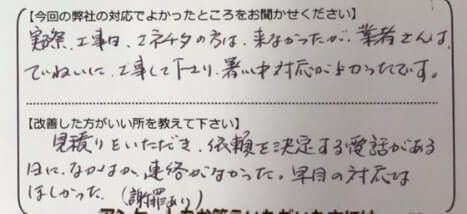 【今回の弊社の対応でよかったところをお聞かせください】
実際、工事日、エネチタの方は、来なかったが、業者さんは、
ていねいに、工事して下さり、暑い中対応がよかったです。
【改善した方がいい所を教えて下さい】
見積りをいただき、依頼を決定する電話がある
日に、なかなか、連絡がなかった。早目の対応が
ほしかった。(謝罪あり)